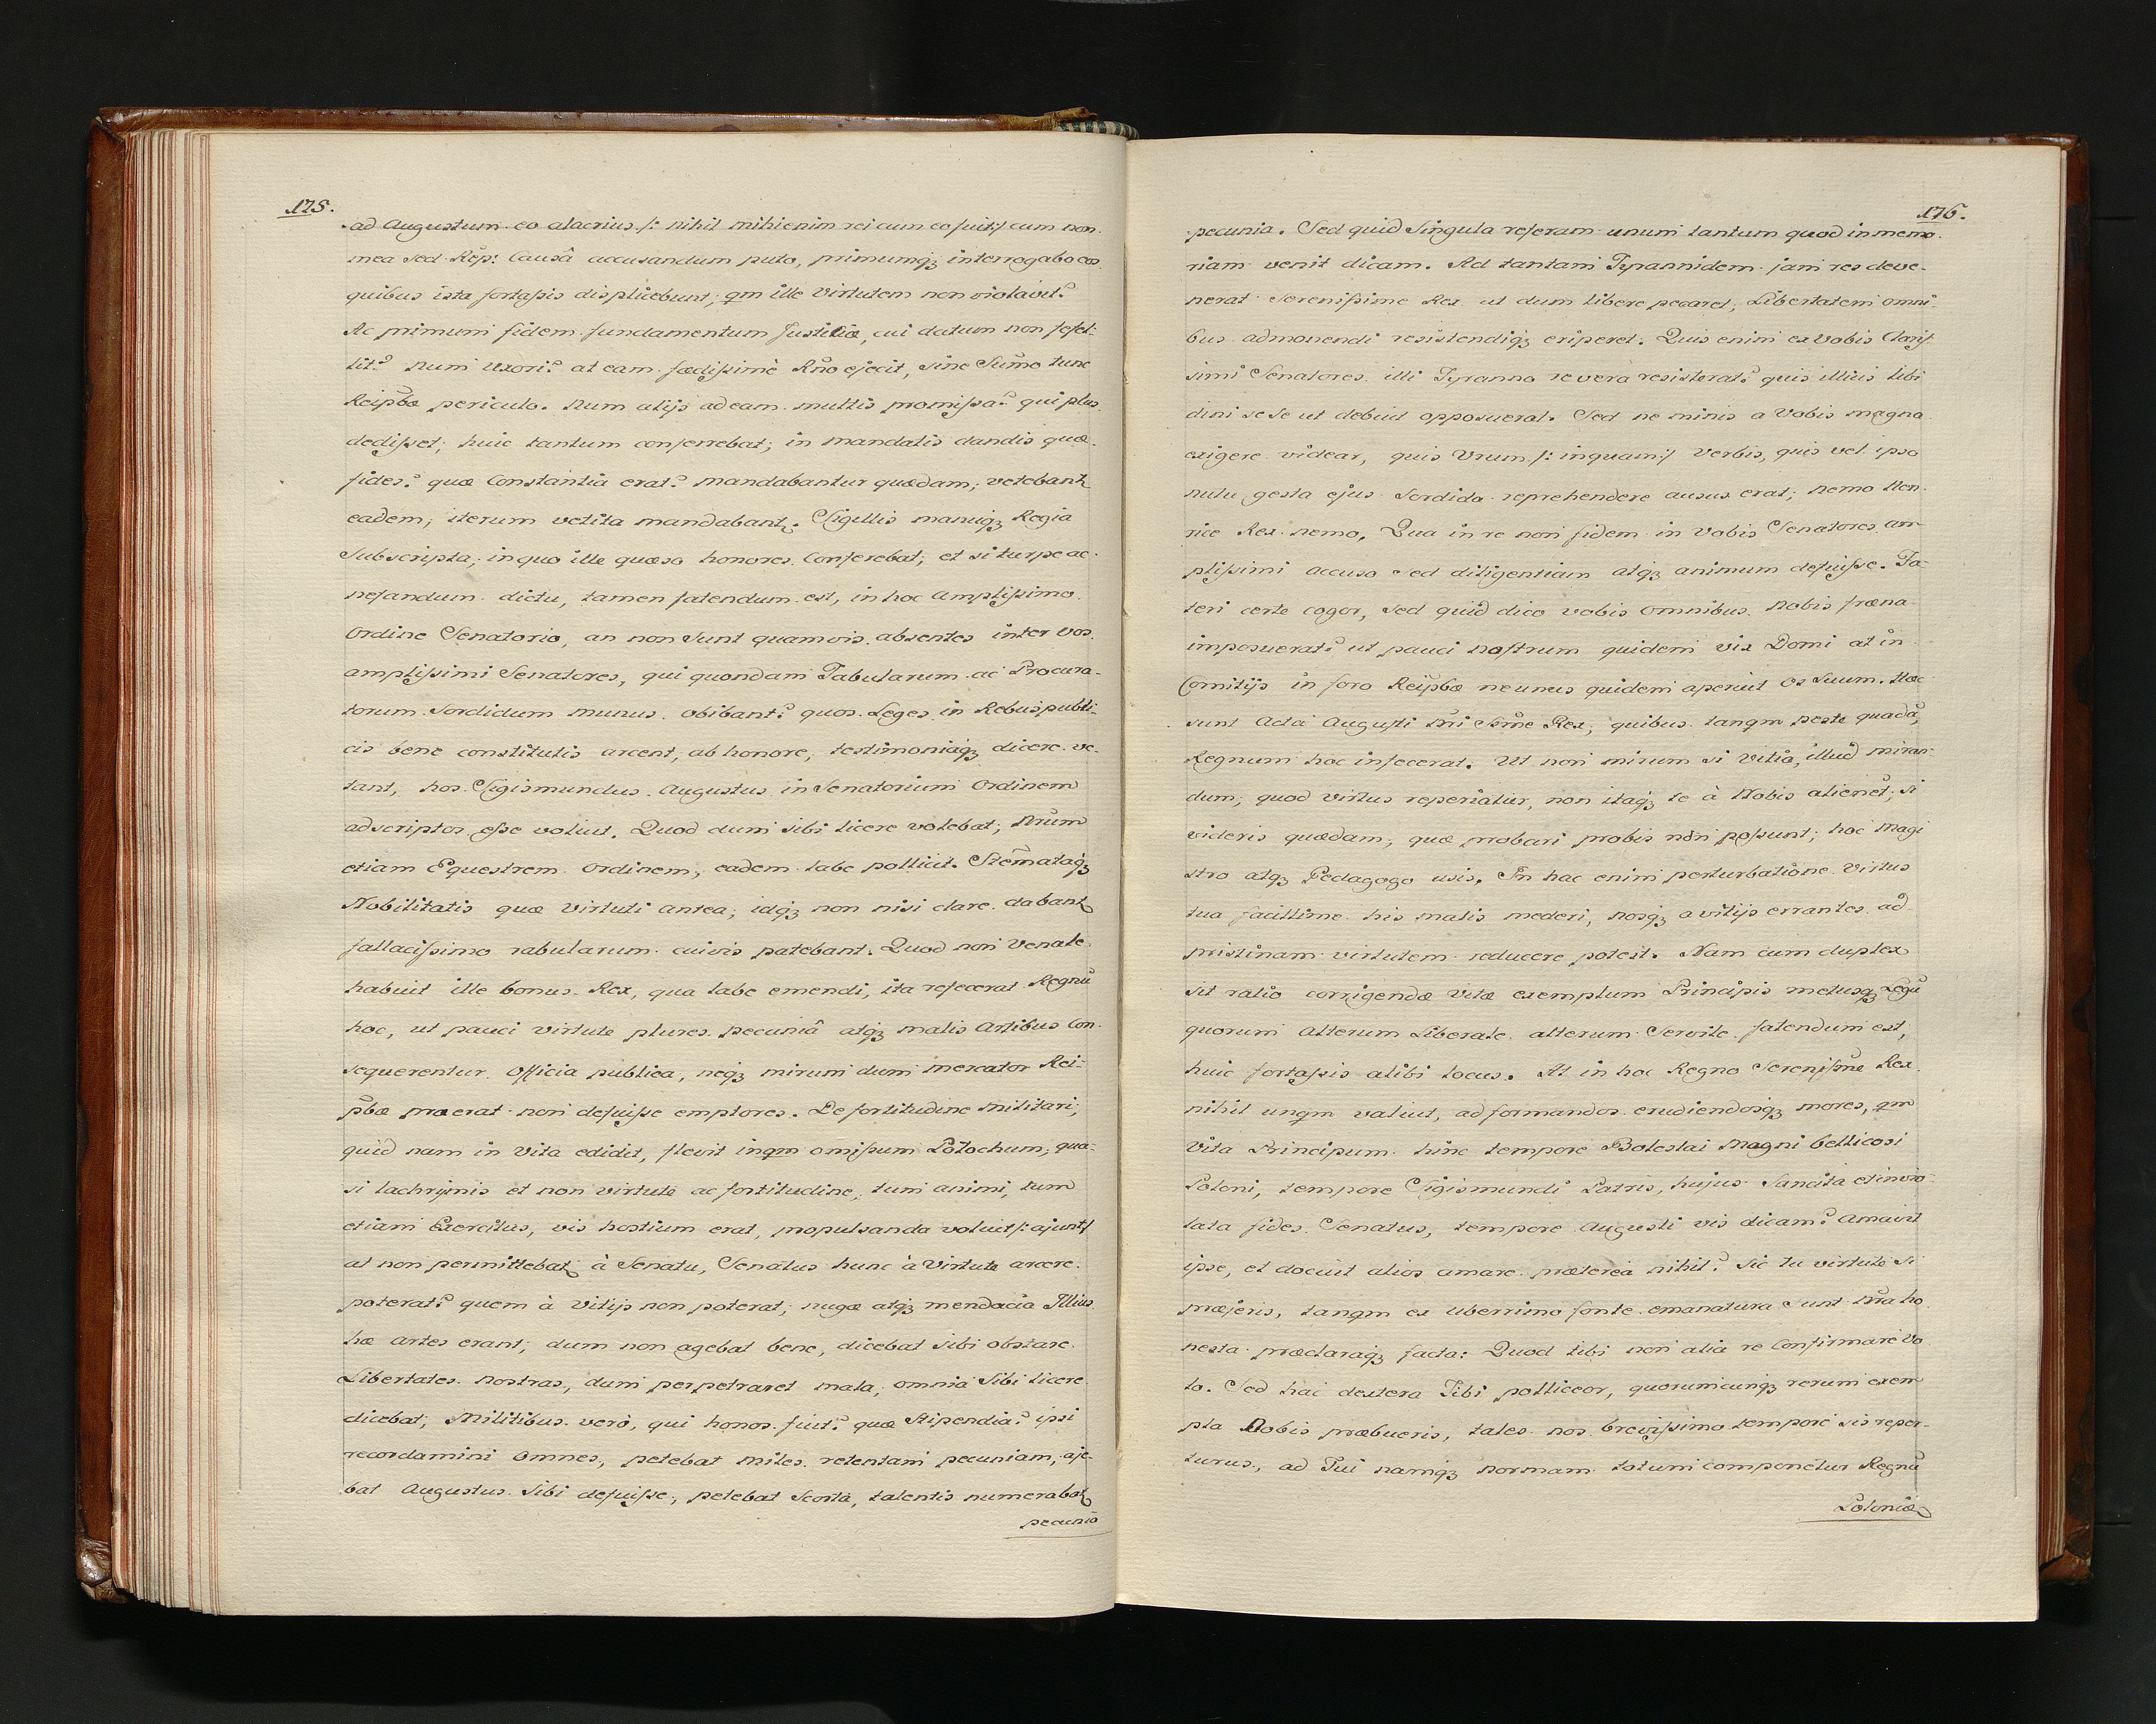 175.
ad Augustum eo alacrius /: nihil mihi enim rei cum eo fuit :/ cum non
mea sed Reip: Causâ accusandum puto, primumq₃ interrogabo eos
quibus ista fortaſsis displicebunt, qm ille Virtutem non violavit?
Ac primum fidem fundamentum Justitiæ, cui datum non fefel-
lit? num uxori? at eam fœdiſsimè Rno ejecit, sine Sumo tunc
Reipbæ periculo. Num alijs ad eam multis promiſsa? qui plus
dediſset, huic tantum conferrebat; in mandatis dandis quæ
fides? quæ Constantia erat? mandabantur quædam, vetebant
eadem, iterum vetita mandabant. Sigillis manuq₃ Regia
Subscripta, in quo ille quæso honores Conferebat, et si turpe ac
nefandum dictu, tamen fatendum est, in hoc Ampliſsimo
Ordine Senatorio, an non sunt quamvis absentes inter vos
ampliſsimi Senatores, qui quondam Tabularum ac Procura-
torum Sordidum munus obibant? quos Leges in Rebuspubli-
cis bene constitutis arcent, ab honore, testimoniaq₃ dicere ve-
tant, hos Sigismundus Augustus in Senatorium Ordinem
adscriptos eſse voluit. Quod dum sibi licere volebat, Nrum
etiam Equestrem Ordinem, eadem labe polluit. Stemataq₃
Nobilitatis quæ Virtuti antea, idq₃ non nisi clare dabant
fallaciſsimo rabularum cuivis patebant. Quod non Venale
habuit ille bonus Rex, qua labe emendi, ita refecerat Regnũ
hoc, ut pauci virtute plures pecuniâ atq₃ malis Artibus Con-
sequerentur Officia publica, neq₃ mirum dum mercator Rei-
pbæ præerat non defuiſse emptores. De fortitudine Militari,
quid nam in Vita edidit, flevit inqm omiſsum Polochum, qua-
si lachrijmis et non virtute ac fortitudine, tum animi, tum
etiam Exercitus, vis hostium erat, propulsanda voluit /: ajunt :/
at non permittebat à Senatu, Senatus hunc à Virtute arcere
poterat? quem à Vitijs non poterat, nugæ atq₃ mendacia Illius
hæ artes erant, dum non agebat bene, dicebat sibi obstare
Libertates nostras, dum perpetraret mala, omnia Sibi licere
dicebat, Militibus verò, qui honos fuit? quæ Stipendia? ipsi
recordamini Omnes, petebat miles retentam pecuniam, aje-
bat Augustus Sibi defuiſse, petebat Scorta, talentis numerabat
pecunia
176.
pecunia. Sed quid Singula referam unum tantum quod in memo-
riam venit dicam. Ad tantam Tyrannidem jam res deve-
nerat Sereniſsime Rex ut dum libere peccaret, Libertatem omni-
bus admonendi resistendiq₃ eriperet. Quis enim ex Vobis Clariſ-
simi Senatores illi Tyranno revera resisterat? quis illius libi
dini se se ut debuit opposuerat. Sed ne nimis a Vobis magna
exigere videar, quis Vrum /: inquam :/ Verbis, quis vel ipso
nutu gesta ejus Sordida reprehendere ausus erat; nemo Hen-
rice Rex nemo. Qua in re non fidem in Vobis Senatores am
pliſsimi accuso sed diligentiam atq₃ animum defuiſse. Fa-
teri certe cogor, sed quid dico vobis omnibus Nobis fræna
imposuerat? ut pauci noſtrum quidem vix Domi at in
Comitijs in foro Reipbæ ne unus quidem aperuit Os Suum. Hæc
sunt Acta Auguſti nri Sme Rex, quibus tanqm peste quadã
Regnum hoc infecerat. Ut non mirum si Vitia, illud miran-
dum, quod Virtus reperiatur, non itaq₃ te à Nobis alienet, si
videris quædam, quæ probari probis non poſsunt, hoc Magi
stro atq₃ Pedagogo usis. In hac enim perturbatione Virtus
tua facillime his malis mederi, nosq₃ a vitijs errantes ad
pristinam virtutem reducere potest. Nam cum duplex
sit ratio corrigendæ Vitæ exemplum Principis metusq₃ Legũ
quorum Alterum Liberale alterum Servile fatendum est,
huic fortaſsis alibi locus. At in hoc Regno Sereniſsme Rex
nihil unqm valuit, ad formandos erudiendosq₃ mores, qm
Vita Principum hinc tempore Boleslai Magni bellicosi
Poloni, tempore Sigismundi Patris, hujus Sancita et invio-
lata fides Senatus, tempore Augusti vis dicam? Amavit
ipse, et docuit alios amare præterea nihil? Sic tu virtute Si
præjeris, tanqm ex Uberrimo fonte emanatura Sunt nra ho
nesta præclaraq₃ facta: Quod tibi non alia re Confirmare Vo
lo. Sed hac dextera Tibi polliceor, quorumcunq₃ rerum exem
pla Nobis præbueris, tales nos breviſsimo tempore sis reper-
turus, ad Tui namq₃ normam totum componetur Regnũ
Poloniæ